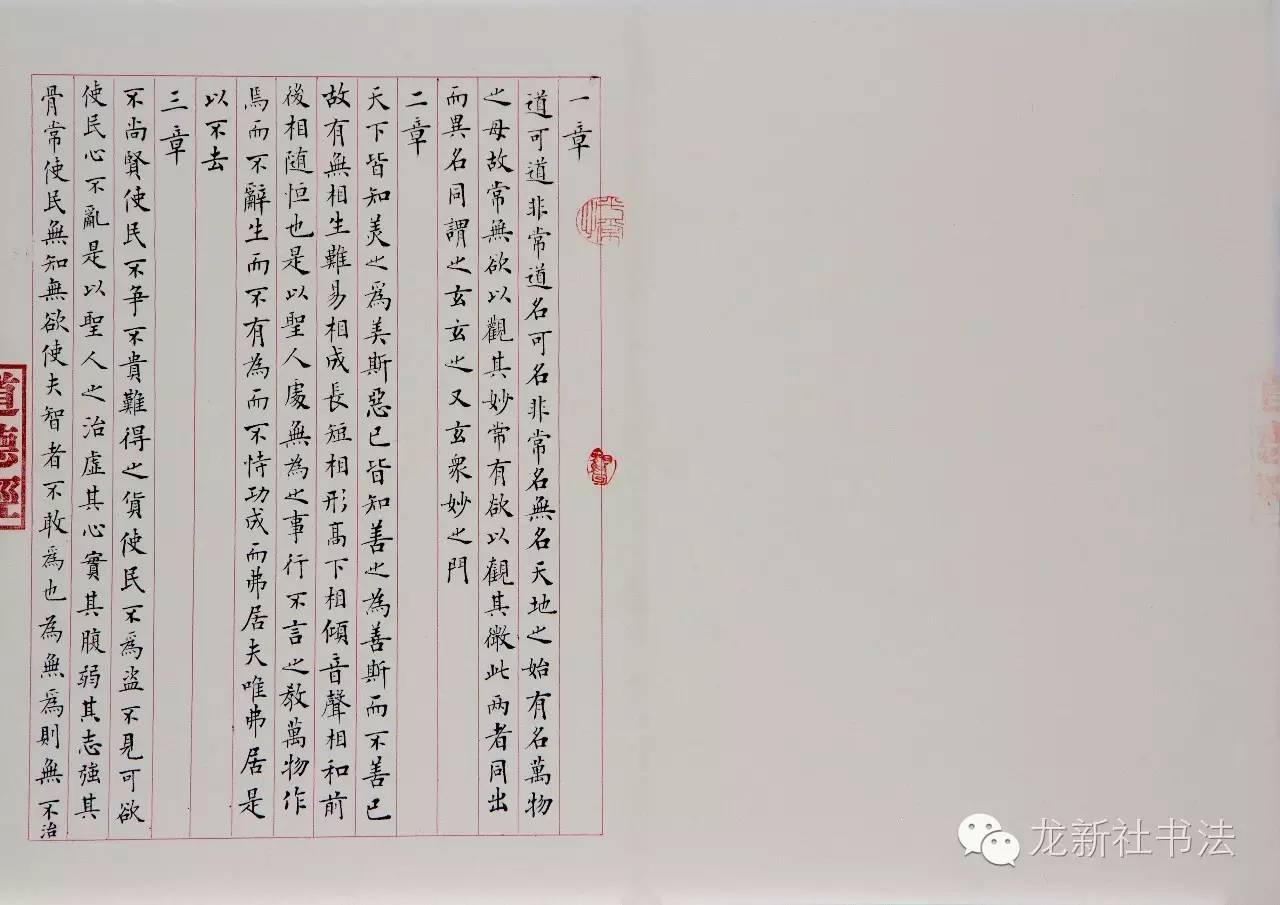 一章
道可道非常道名可名非常名無名天地之始有名萬物
之母故常無欲以觀其妙常有欲以觀其徼此两者同出
而異名同謂之玄玄之又玄衆妙之門
二章
天下皆知美之爲美斯惡已皆知善之為善斯而不善已
故有無相生難易相成長短相形髙下相傾音聲相和前
後相随恒也是以聖人處無為之事行不言之教萬物作
焉而不辭生而不有為而不恃功成而弗居夫唯弗居是
以不去
三章
不尚賢使民不争不貴難得之貨使民不爲盗不見可欲
使民心不亂是以聖人之治虛其心實其腹弱其志強其
骨常使民無知無欲使夫智者不敢爲也為無爲則無不治
道德經
龙新社书法